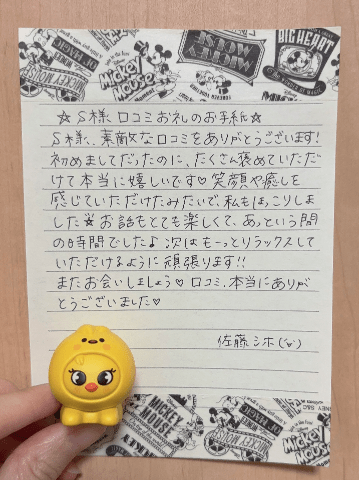 ☆S様 口コミお礼のお手紙☆
S様、素敵な口コミをありがとうございます!
初めましてだったのに、たくさん褒めていただ
けて本当に嬉しいです♡笑顔や癒しを
感じていただけたみたいで、私もほっこりしま
した★お話もとても楽しくて、あっという間
の日時間でした♪次はもーっとリラックスして
いただけるように頑張ります!!
またお会いしましょう♡口コミ、本当にありが
とうございました♡
佐藤シホ
Mickey
Mouse
BIG HEART
MICKEY
MOUSE